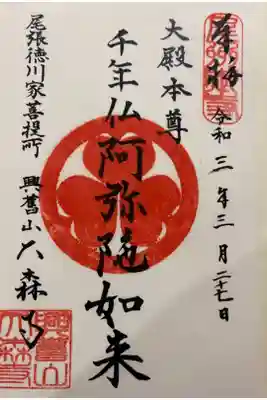 奉拝
令和三年三月二十七日
大殿本尊
千年仏阿弥陀如来
尾張徳川家菩提所
興旧山大森寺